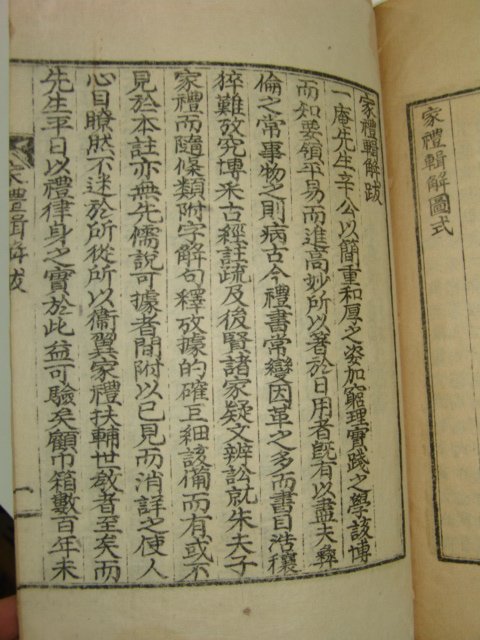 家禮輯解圖式
家禮輯解跋
一庵先生辛公以簡重和厚之姿加窮理實踐之學該博
而知要領平易而進高妙所以著於日用者旣有以盡夫彛
倫之常事物之則病古今禮書常變因革之多而書目浩穰
猝難攷究博采古經註疏及後賢諸家疑文辨訟就朱夫子
家禮而隨條類附字解句釋攷據的確巨細該備而有或不
見於本註亦無先儒說可據者間附以已見而消詳之使人
心目瞭然不迷於所從所以衞翼家禮扶輔世敎者至矣而
先生平日以禮律身之實於此益可驗矣顧巾箱數百年未
家禮輯解跋
一